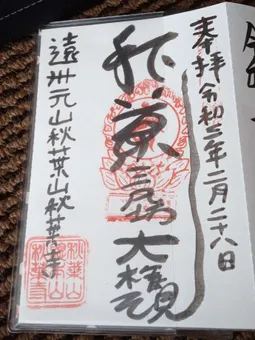 奉拝 令和三年二月二十八日
秋葉三尺坊大権現
遠州元山秋葉山秋葉寺